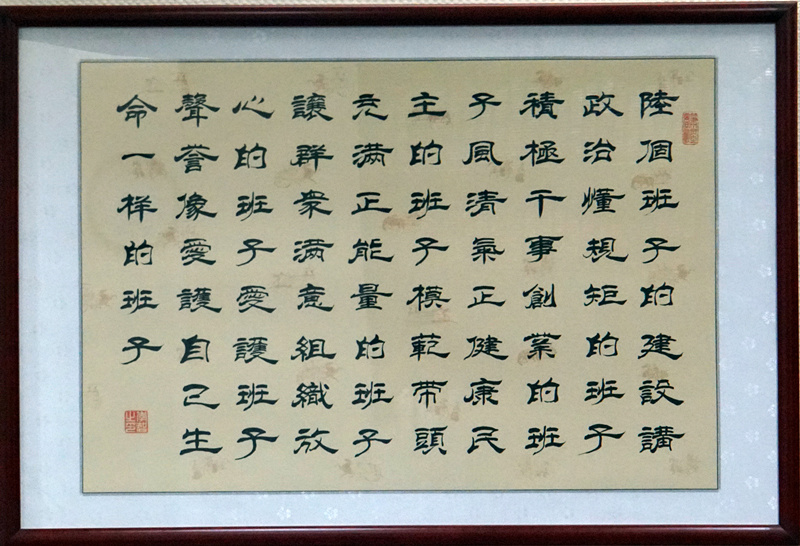 陸個班子的建設講
政治懂規矩的班子
積極干事創業的班
子風清氣正健康民
主的班子模範带頭
充满正能量的班子
讓群衆满意組織放
心的班子愛護班子
聲誉像愛護自己生
命一样的班子